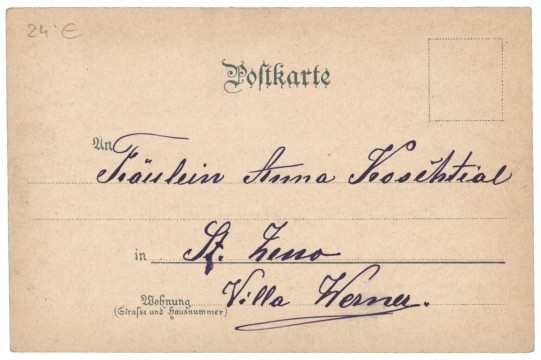 24 €
Postkarte
An
Fräulein Anna
in St. Zeno
Wohnung Villa Werner.
(Strasse und Hausnummer)